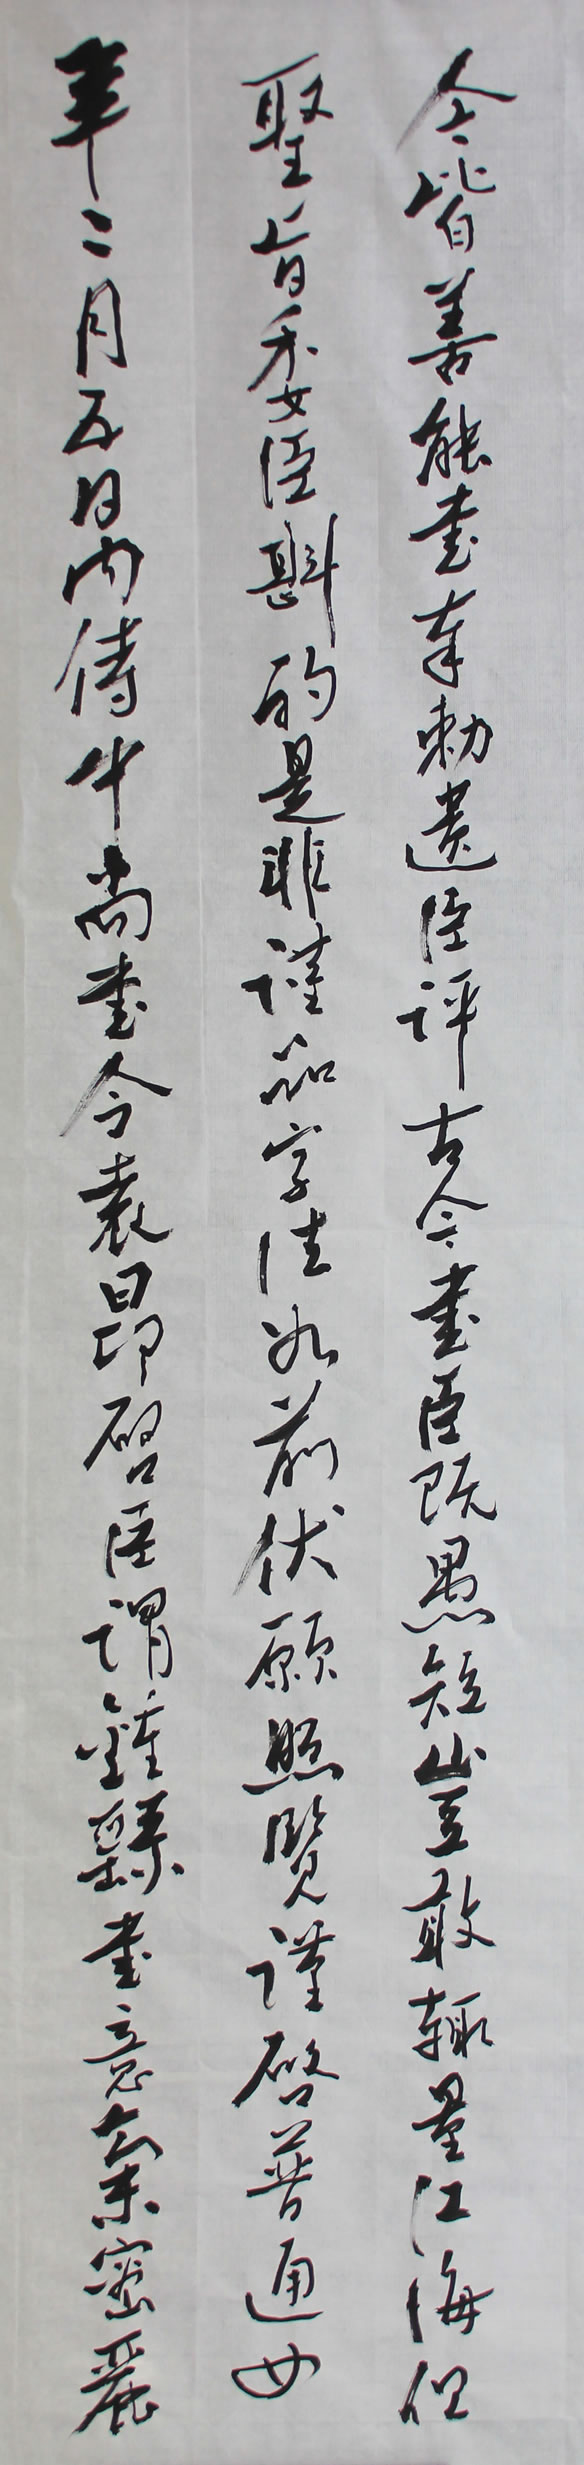 今皆善能書奉勅遣臣評古今書臣既愚短豈敢輒量江海但
聖旨委臣斟的是非謹品字法如前伏願照覽謹啓普通四
年二月五日内侍中尚書令袁昂啓臣謂鍾繇書意氣密麗